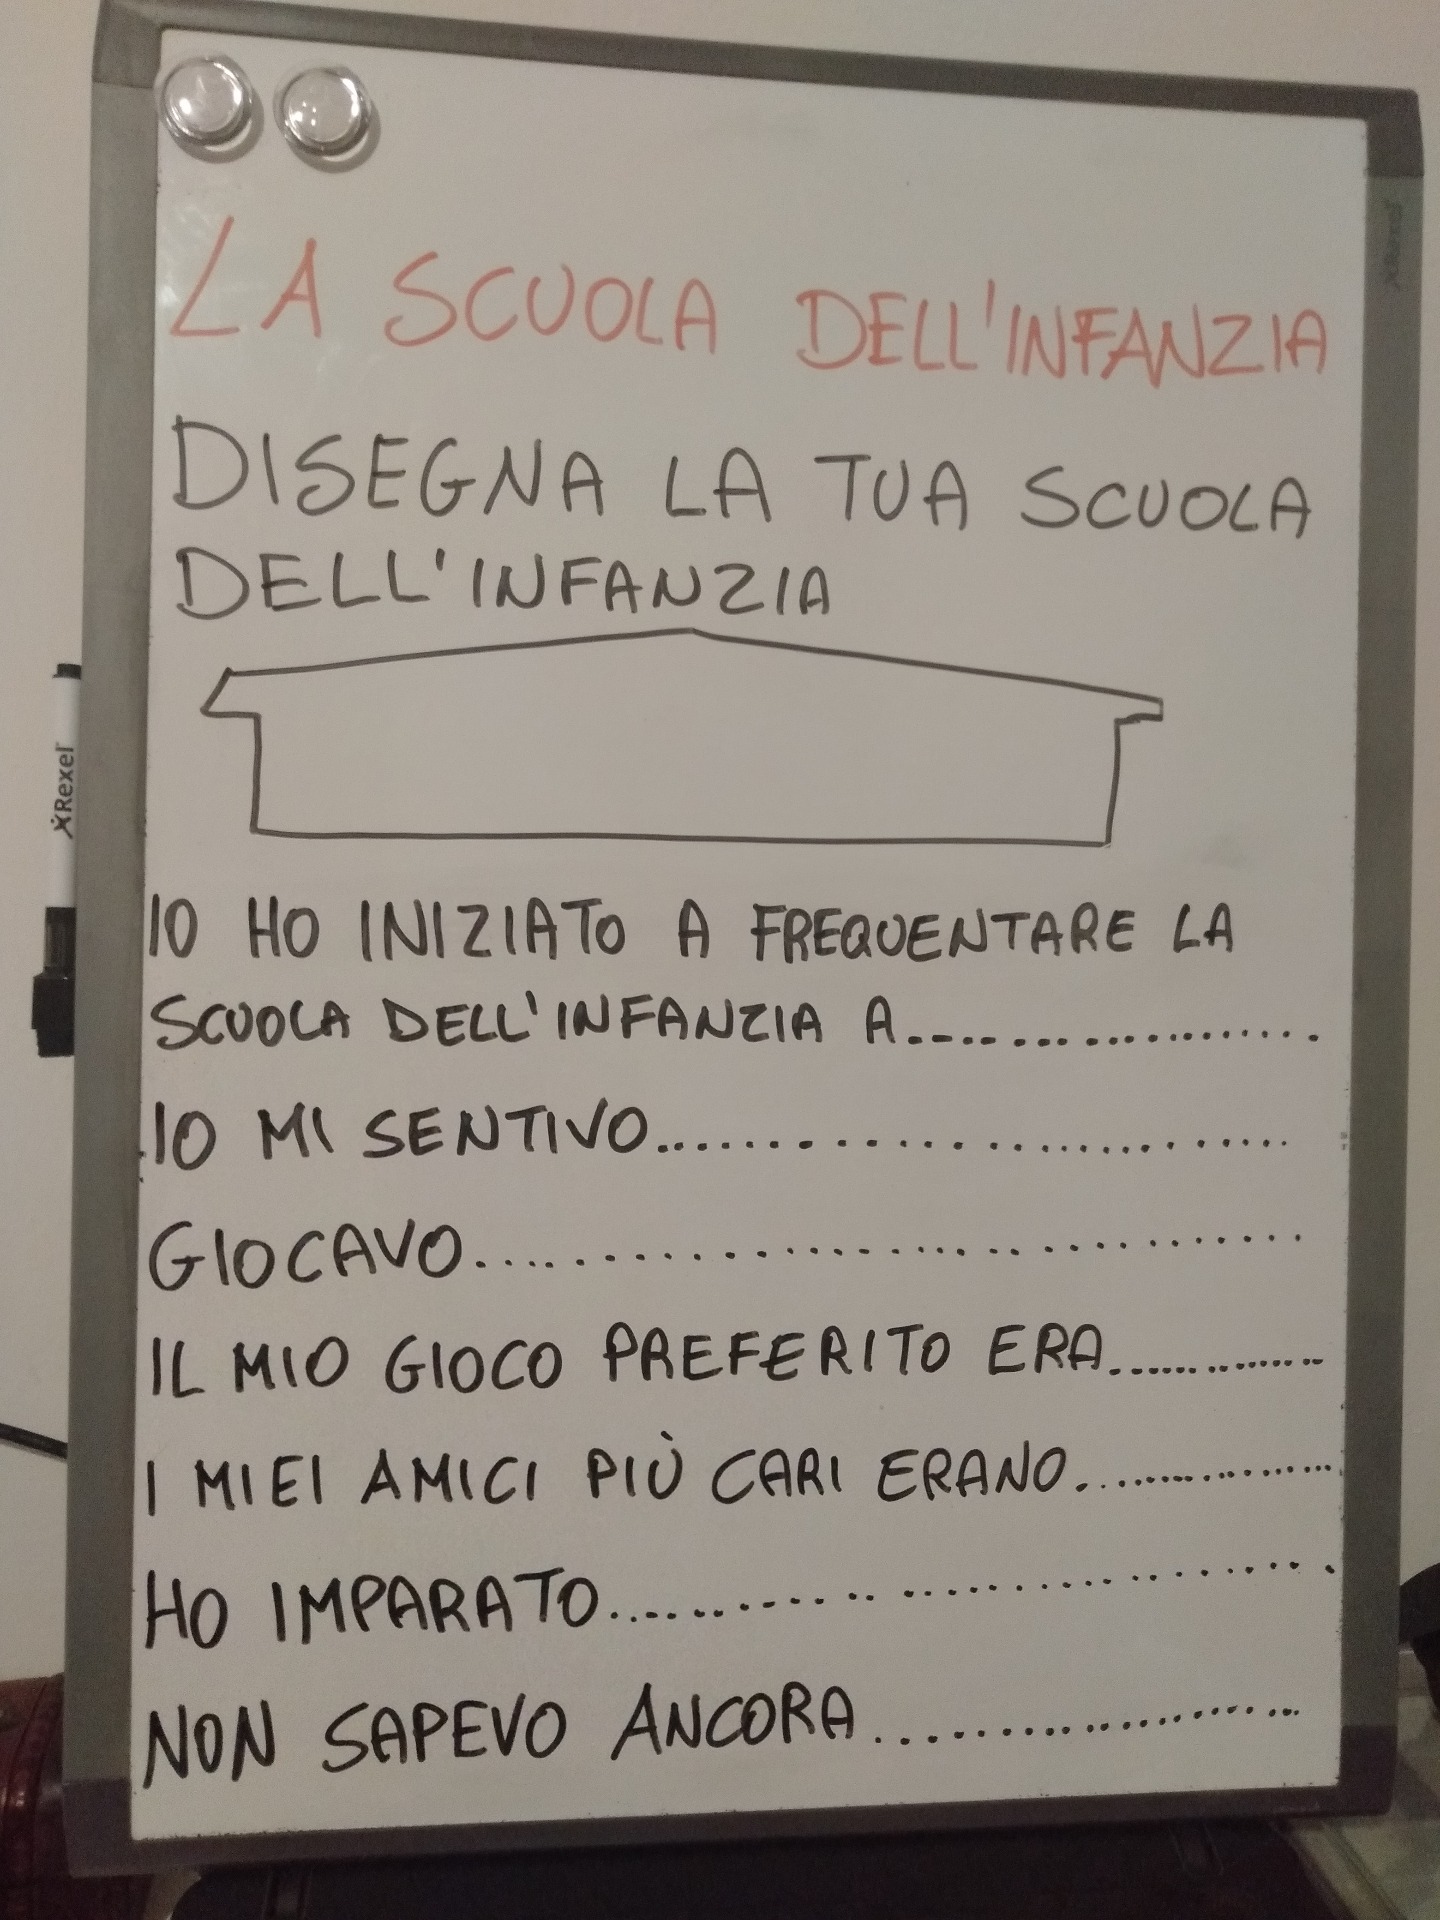 LA SCUOLA DELL'INFANZIA
DISEGNA LA TUA SCUOLA
DELL'INFANZIA
IO HO INIZIATO A FREQUENTARE LA
SCUOLA DELL'INFANZIA A....................
IO MI SENTIVO....................
GIOCAVO....................
IL MIO GIOCO PREFERITO ERA....................
I MIEI AMICI PIÙ CARI ERANO....................
HO IMPARATO....................
NON SAPEVO ANCORA....................
Rexel